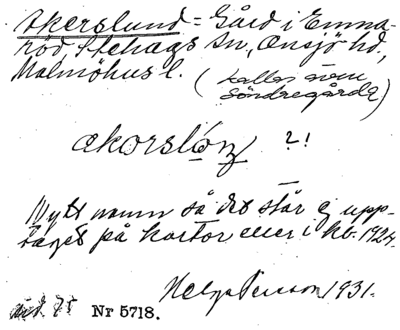 Akerslund = Gård i Emma-
röd, Stehags sn, Onsjö hd.,
Malmöhus l. (kallas även
Söndregårda)
akorslónz ?!
Nytt namn så det står ej upp-
taget på kartor eller i kb. 1924.
Helge Persson 1931.
Nr 5718.